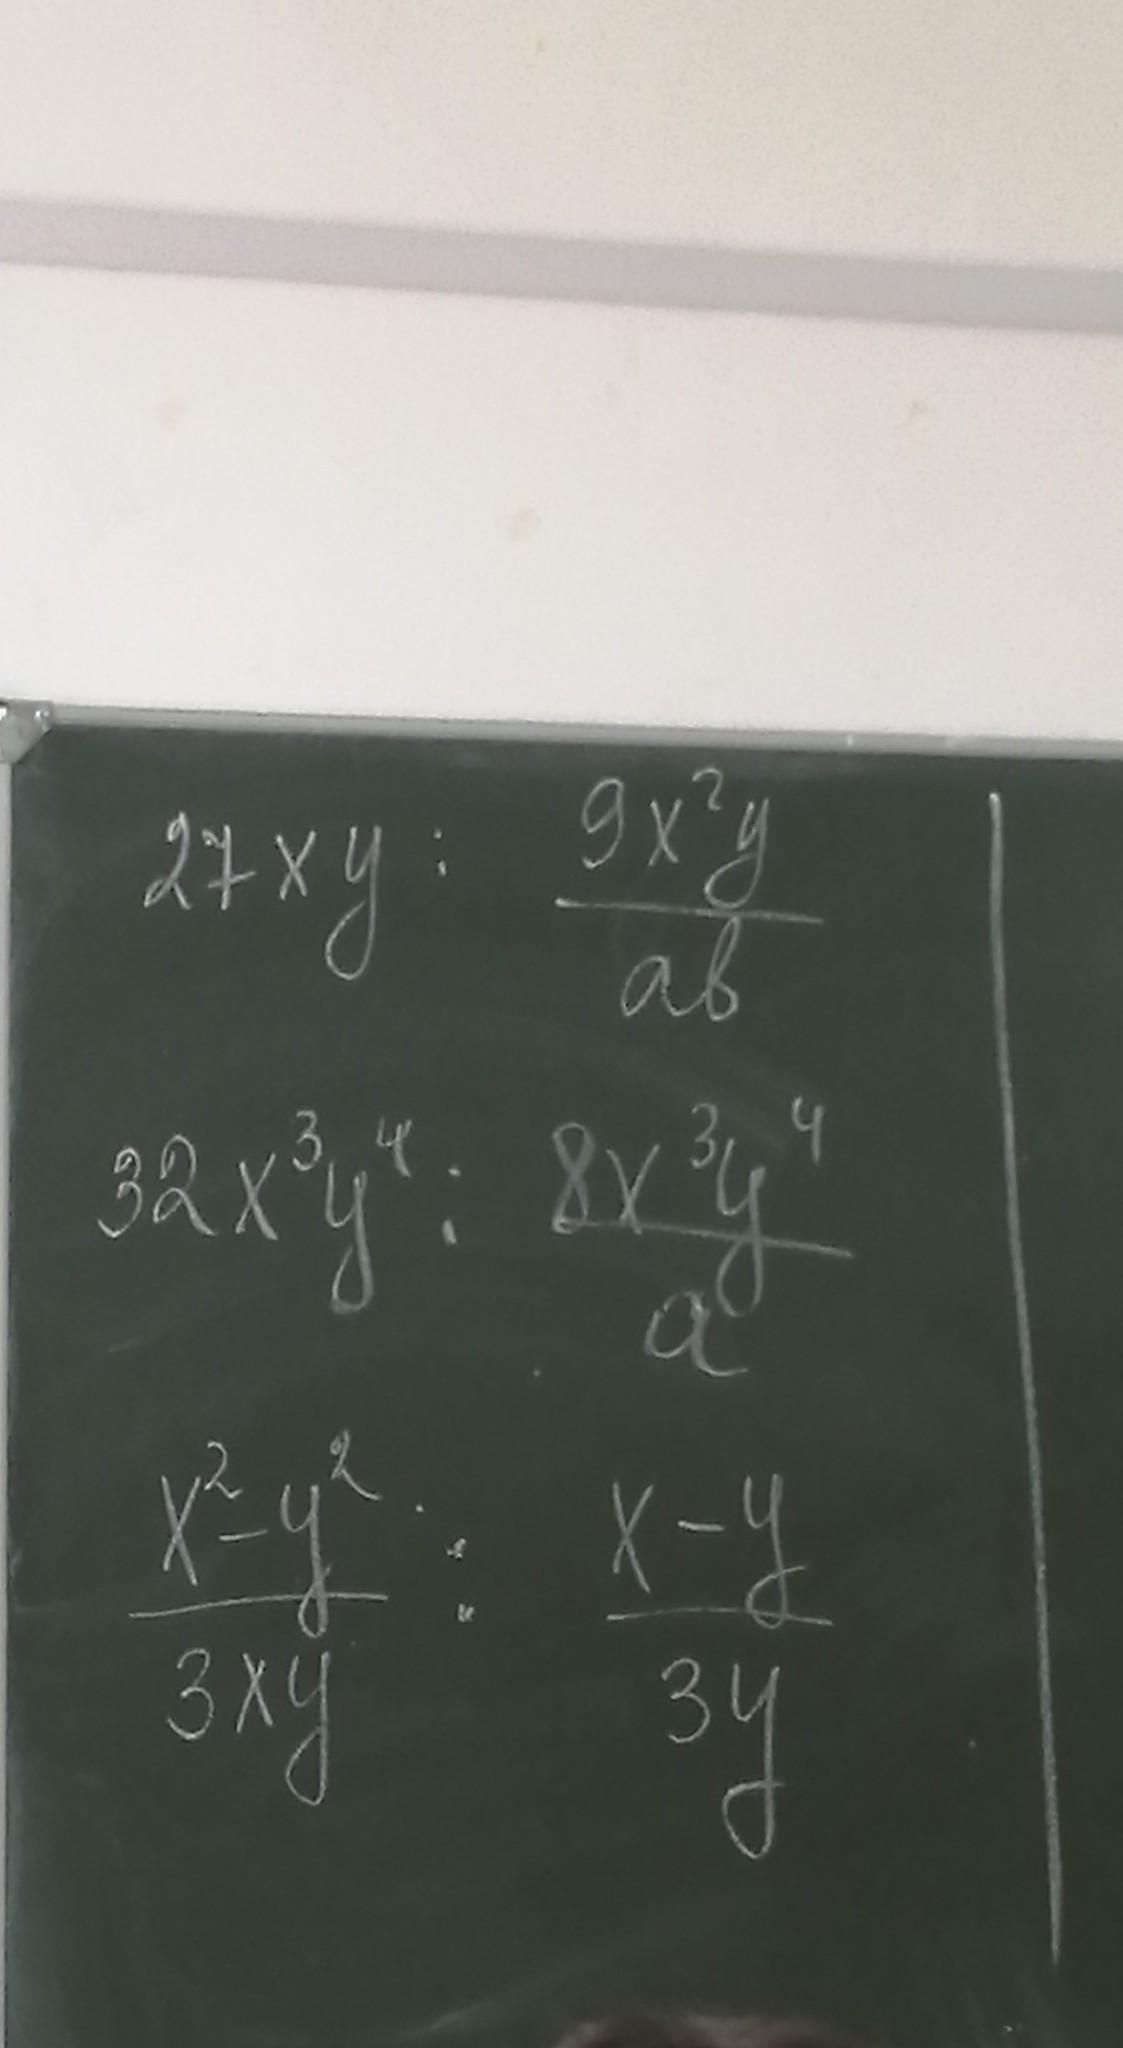 27xy : 9x²y/ab
32x³y⁴ : 8x³y⁴/a
x²-y²/3xy : x-y/3y